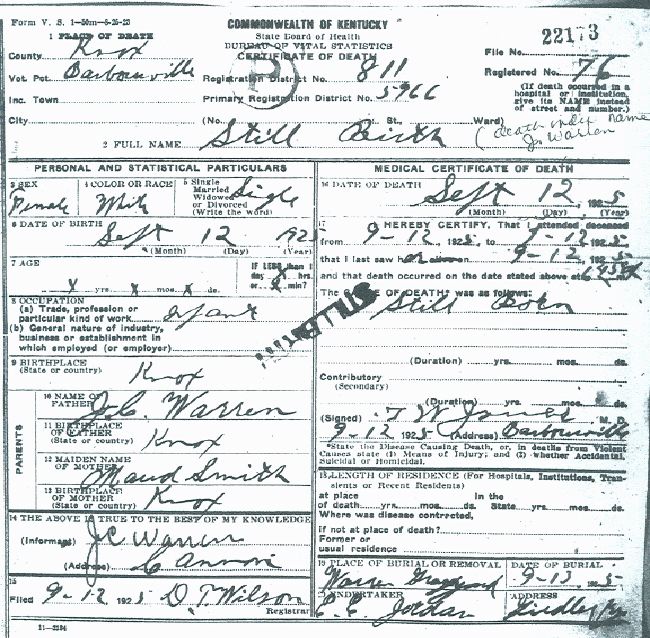 Form V. S. 1—50m—6-25-23
COMMONWEALTH OF KENTUCKY
State Board of Health
BUREAU OF VITAL STATISTICS
CERTIFICATE OF DEATH
22173
File No.
1 PLACE OF DEATH
County Knox
Vot. Pct. Barbourville
Registration District No. 811
Registered No. 76
Inc. Town
Primary Registration District No. 5966
(If death occurred in a hospital or institution, give its NAME instead of street and number.)
City
(No. St., Ward)
(death under name
J. Warren
2 FULL NAME Still Birth
PERSONAL AND STATISTICAL PARTICULARS
3 SEX
Female
4 COLOR OR RACE
White
5 Single
Married
Widowed
or Divorced
(Write the word)
Sigle
6 DATE OF BIRTH
Sept 12 192
(Month) (Day) (Year)
7 AGE
IF LESS than 1
day hrs.
or min?
yrs. mos. ds.
8 OCCUPATION
(a) Trade, profession or
particular kind of work infant
(b) General nature of industry,
business or establishment in
which employed (or employer)
9 BIRTHPLACE
(State or country)
Knox
PARENTS
10 NAME OF
FATHER
J. C. Warren
11 BIRTHPLACE
OF FATHER
(State or country)
Knox
12 MAIDEN NAME
OF MOTHER
Maud Smith
13 BIRTHPLACE
OF MOTHER
(State or country)
Knox
14 THE ABOVE IS TRUE TO THE BEST OF MY KNOWLEDGE
(Informant) J C Warren
(Address) Cannon
15
Filed 9-12 1925 D. T. Wilson
Registrar
11-3184
MEDICAL CERTIFICATE OF DEATH
16 DATE OF DEATH
Sept 12, 1925
(Month) (Day) (Year)
17 I HEREBY CERTIFY, That I attended deceased
from 9-12 1925, to 9-12 1925
that I last saw h alive on 9-12 1925
and that death occurred on the date stated above at
The CAUSE OF DEATH* was as follows:
Still Born
STILLBIRTH
(Duration) yrs. mos. ds.
Contributory
(Secondary)
(Duration) yrs. mos. ds.
(Signed) T W Jones M. D.
9-12 1925 (Address) Barbourville
*State the Disease Causing Death, or, in deaths from Violent
Causes state (1) Means of Injury; and (2) whether Accidental,
Suicidal or Homicidal.
18 LENGTH OF RESIDENCE (For Hospitals, Institutions, Transients or Recent Residents)
at place In the
of death yrs. mos. ds. State yrs. mos. ds.
Where was disease contrected,
if not at place of death?
Former or
usual residence
19 PLACE OF BURIAL OR REMOVAL
Warren Graveyard
DATE OF BURIAL
9-13 1925
20 UNDERTAKER
C. C. Jordan
ADDRESS